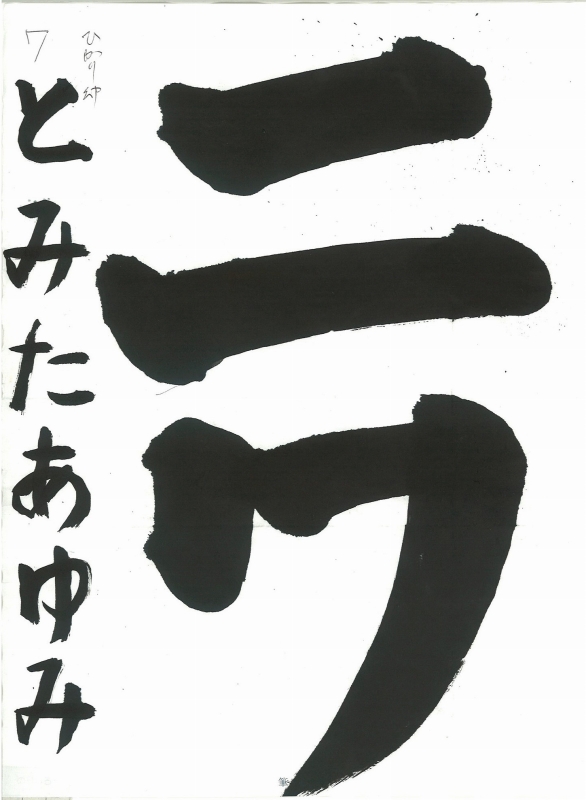 ニワ
ひかり幼
7
とみたあゆみ